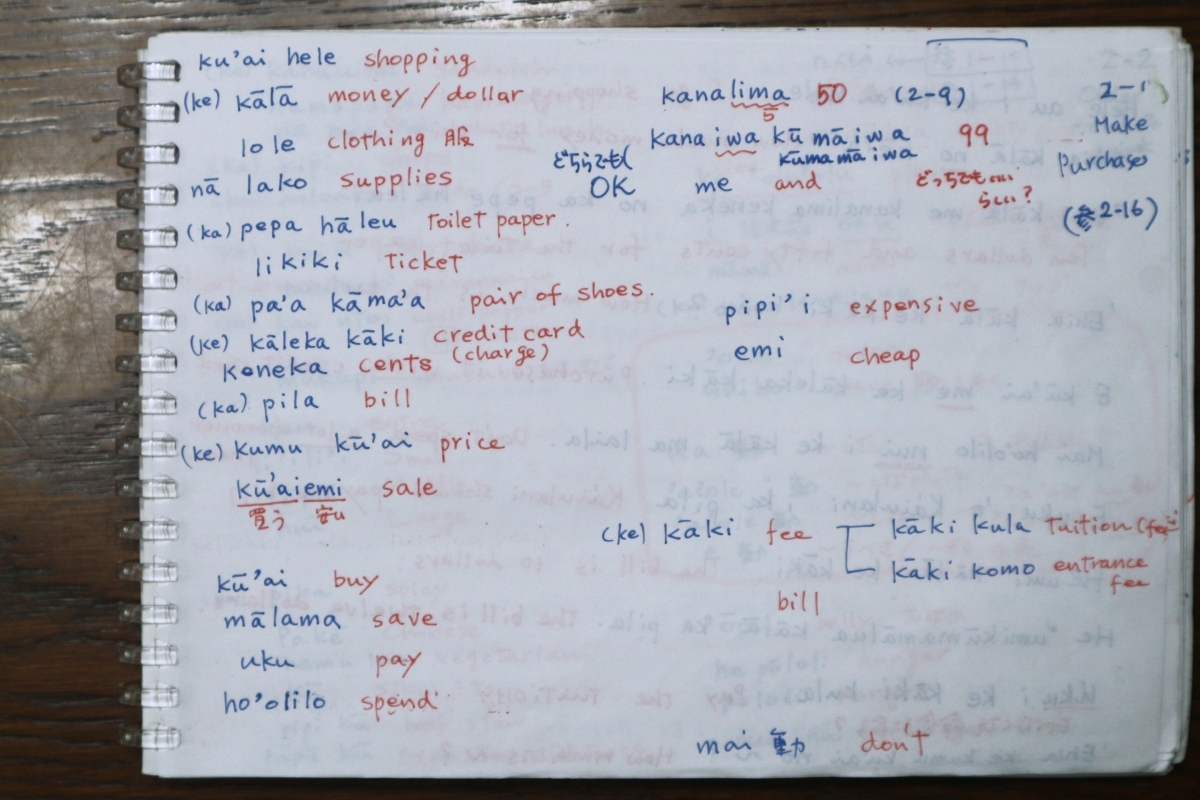 ku'ai hele shopping
(ke) kālā money / dollar
lole clothing 服
nā lako supplies
(ka) pepa hāleu toilet paper.
likiki ticket
(ka) pa'a kāma'a pair of shoes.
(ke) kāleka kāki credit card
(charge)
keneka cents
(ka) pila bill
(ke) kumu kū'ai price
kū'ai emi sale
買う 安い
kū'ai buy
mālama save
uku pay
ho'olilo spend
kanalima 50 (2-9)
5
kanaiwa kūmāiwa 99
どちらでも kūmamāiwa
OK me and どっちでもいい
らしい?
2-1
Make
Purchases
(参2-16)
pipi'i expensive
emi cheap
(ke) kāki fee
kāki kula tuition (fee)
kāki komo entrance
fee
bill
mai 動 don't